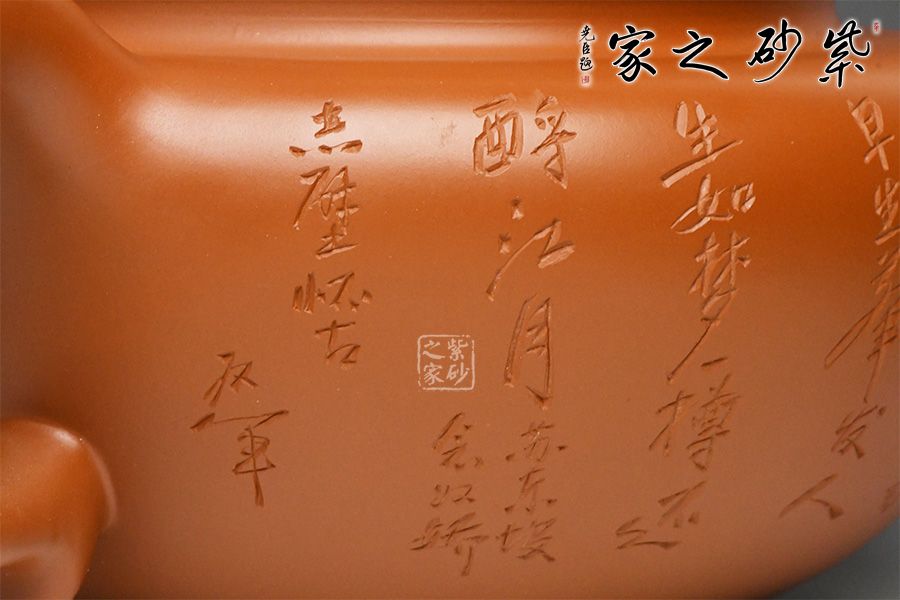 紫砂之家
尧臣题
早生華发
人
生如梦一樽还
酹江月 苏东坡
念奴娇
赤壁怀古
紫砂
之家